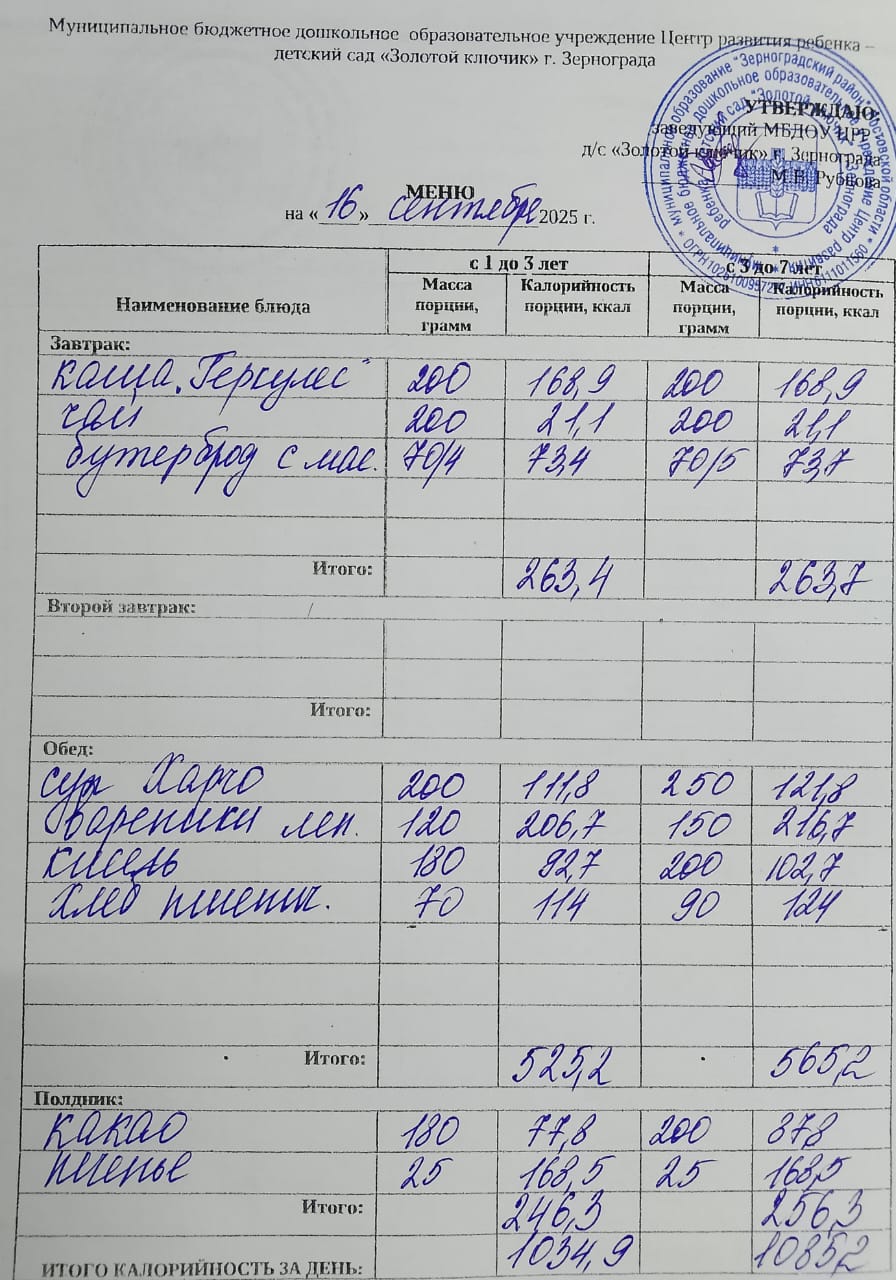 Муниципальное бюджетное дошкольное образовательное учреждение Центр развития ребенка –
детский сад «Золотой ключик» г. Зернограда
УТВЕРЖДАЮ:
Заведующий МБДОУ ЦРР
д/с «Золотой ключик» г. Зернограда
М.В. Рубцова
МЕНЮ
на «16» сентября 2025 г.
Наименование блюда с 1 до 3 лет с 3 до 7 лет
Масса порции, грамм Калорийность порции, ккал Масса порции, грамм Калорийность порции, ккал
Завтрак:
каша „Геркулес" 200 168,9 200 168,9
чай 200 21,1 200 21,1
бутерброд с мас. 70/4 73,4 70/5 73,7
Итого: 263,4 263,7
Второй завтрак:
Итого:
Обед:
суп Харчо 200 111,8 250 121,8
вареники лен. 120 206,7 150 216,7
кисель 180 92,7 200 102,7
хлеб пшенич. 70 114 90 124
Итого: 525,2 565,2
Полдник:
какао 180 77,8 200 87,8
печенье 25 168,5 25 168,5
Итого: 246,3 256,3
ИТОГО КАЛОРИЙНОСТЬ ЗА ДЕНЬ: 1034,9 1085,2